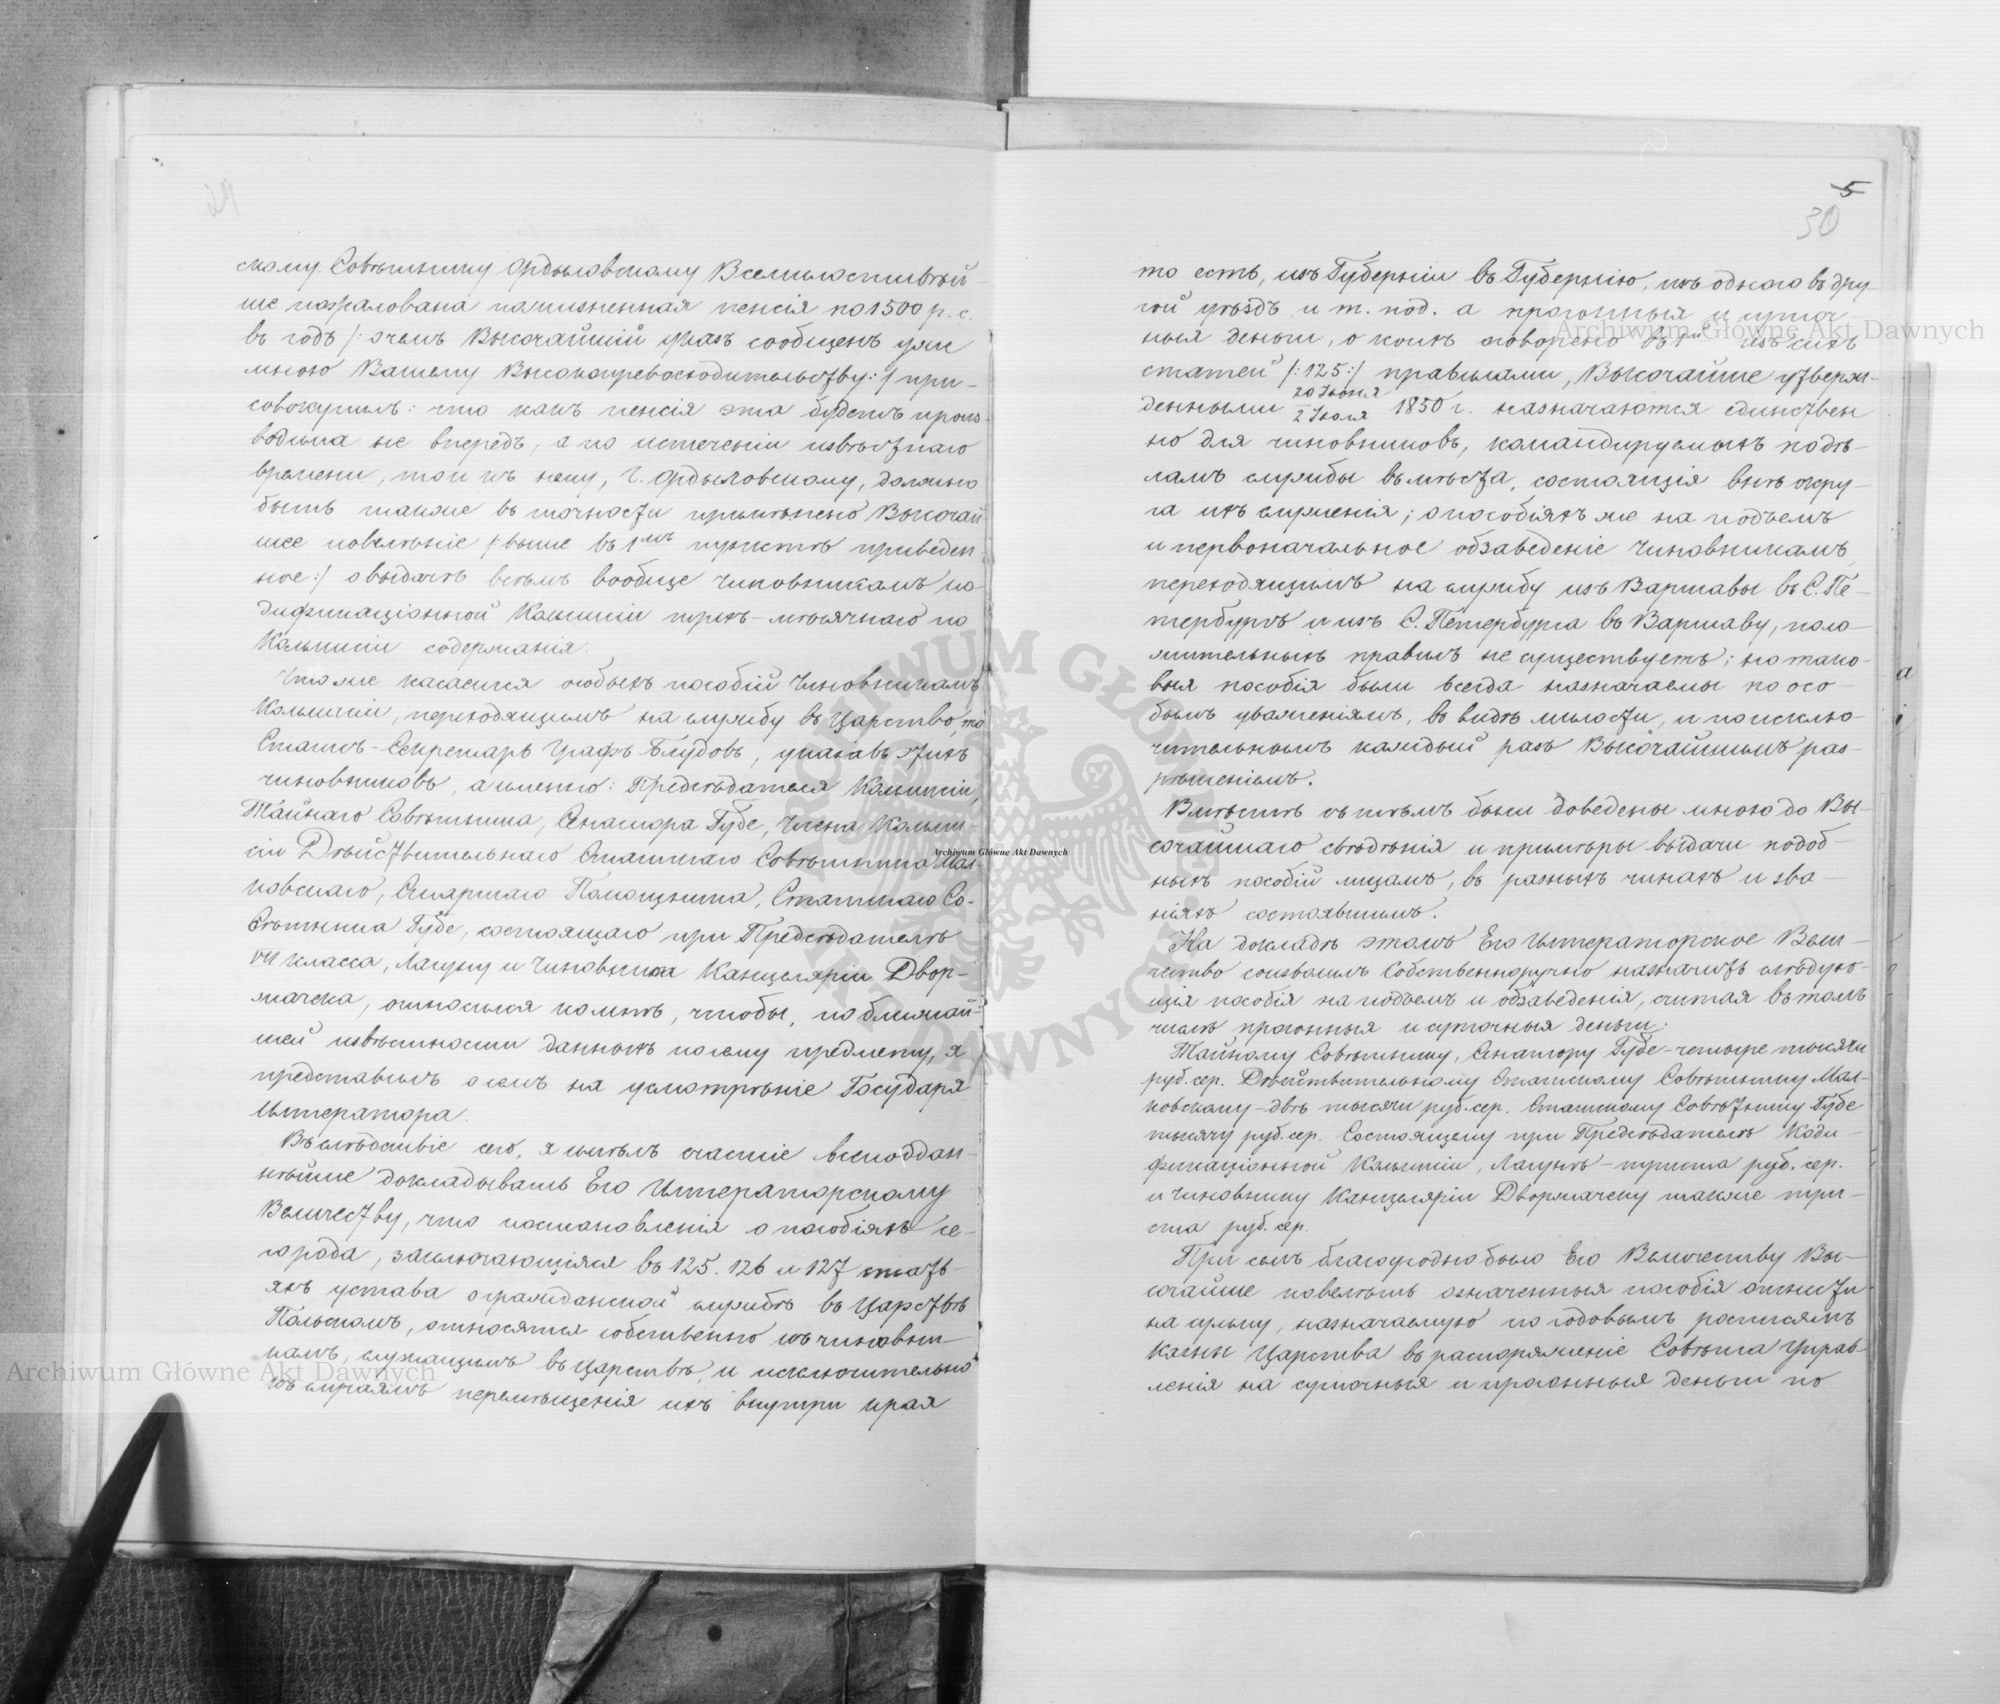 скому Совѣтнику Ордыловскому Всемилостивѣй-
ше пожалована пожизненная пенсія по 1500 р. с.
въ годъ /: о чемъ Высочайшій указъ сообщенъ уже
мною Вашему Высокопревосходительству :/ при-
совокупилъ: что какъ пенсія эта будетъ произ-
водима не впередъ, а по истеченіи извѣстнаго
времени, то и къ нему, Г. Ордыловскому, должно
быть также въ точности примѣнено Высочай-
шее повелѣніе /: выше въ 1мъ пунктѣ приведен-
ное :/ о выдачѣ всѣмъ вообще чиновникамъ Ко-
дификаціонной Коммисіи трехъ-мѣсячнаго по
Коммисіи содержанія.
Что же касается особыхъ пособій Чиновникамъ
Коммисіи, переходящимъ на службу въ Царство, то
Статсъ-Секретарь Графъ Блудовъ, указавъ этихъ
чиновниковъ, а именно: Предсѣдателя Коммисіи,
Тайнаго Совѣтника, Сенатора Губе, Члена Комми-
сіи Дѣйствительнаго Статскаго Совѣтника Мал-
ковскаго, Старшаго Помощника, Статскаго Со-
вѣтника Губе, состоящаго при Предсѣдателѣ
VII класса, Лагуну и Чиновника Канцеляріи Двор-
жачека, относился ко мнѣ, чтобы, по ближай-
шей извѣстности данныхъ по сему предмету, я
представилъ о семъ на усмотрѣніе Государя
Императора.
Въ слѣдствіе сего, я имѣлъ счастіе всеподдан-
нѣйше докладывать Его Императорскому
Величеству, что постановленія о пособіяхъ се-
го рода, заключающіяся въ 125. 126 и 127 стать-
яхъ устава о гражданской службѣ въ Царствѣ
Польскомъ, относятся собственно къ чиновни-
камъ, служащимъ въ Царствѣ, и исключительно
къ случаямъ перемѣщенія ихъ внутри края
5
30
то есть, изъ Губерніи въ Губернію, изъ одного въ дру-
гой уѣздъ и т. под. а прогонныя и суточ-
ныя деньги, о коихъ оговорено въ 1й изъ сихъ
статей /: 125 :/ правилами, Высочайше утверж-
денными 20 Іюня
2 Іюля 1850 г. назначаются единствен-
но для чиновниковъ, командируемыхъ по дѣ-
ламъ службы въ мѣста, состоящія внѣ окру-
га ихъ служенія; о пособіяхъ же на подъемъ
и первоначальное обзаведеніе Чиновникамъ,
переходящимъ на службу изъ Варшавы въ С. Пе-
тербургъ и изъ С. Петербурга въ Варшаву, поло-
жительныхъ правилъ не существуетъ; но тако-
выя пособія были всегда назначаемы по осо-
бымъ уваженіямъ, въ видѣ милости, и по исклю-
чительнымъ каждый разъ Высочайшимъ раз-
рѣшеніемъ.
Вмѣстѣ съ тѣмъ были доведены мною до Вы-
сочайшаго свѣдѣнія и примѣры выдачи подоб-
ныхъ пособій лицамъ, въ разныхъ чинахъ и зва-
ніяхъ состоявшимъ.
На докладѣ этомъ Его Императорское Вели-
чество соизволилъ Собственноручно назначить слѣдую-
щія пособія на подъемъ и обзаведенія, считая въ томъ
числѣ прогонныя и суточныя деньги:
Тайному Совѣтнику, Сенатору Губе - четыре тысячи
руб. сер. Дѣйствительному Статскому Совѣтнику Мал-
ковскому - двѣ тысячи руб. сер. Статскому Совѣтнику Губе
тысячу руб. сер. Состоящему при Предсѣдателѣ Коди-
фикаціонной Коммисіи, Лагунѣ - триста руб. сер.
и Чиновнику Канцеляріи Дворжачеку также три-
ста руб. сер.
При семъ благоугодно было Его Величеству Вы-
сочайше повелѣть означенныя пособія отнести
на сумму, назначаемую по годовымъ росписямъ
Казны Царства въ распоряженіе Совѣта Управ-
ленія на суточныя и прогонныя деньги по
Archiwum Główne Akt Dawnych
Archiwum Główne Akt Dawnych
Archiwum Główne Akt Dawnych